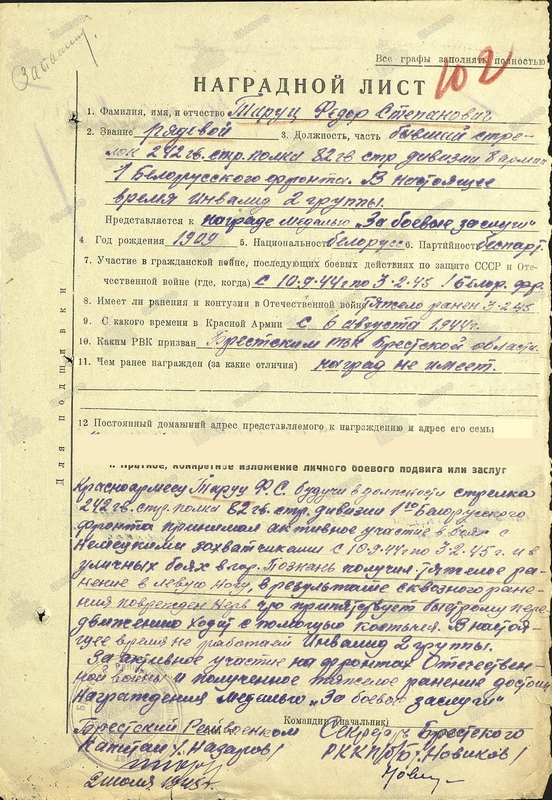 Запашин
Все графы заполнять полностью
102
НАГРАДНОЙ ЛИСТ
1. Фамилия, имя, и отчество Таруц Федор Степанович
2. Звание рядовой 3. Должность, часть бывший стре-
лок 242 гв. стр. полка 82 гв стр дивизии 8 армии
1 Белорусского фронта. В настоящее
время инвалид 2 группы.
Представляется к награде медалью „За боевые заслуги"
4 Год рождения 1909 5. Национальность белорусс 6. Партийность беспарт.
7. Участие в гражданской войне, последующих боевых действиях по защите СССР и Оте-
чественной войне (где, когда) с 10.9.44г по 3.2.45 1 Белор. фр.
8. Имеет ли ранения и контузии в Отечественной войне Тяжело ранен 3-2-45
9. С какого времени в Красной Армии с 6 августа 1944г.
10. Каким РВК призван Брестским РВК Брестской области.
11. Чем ранее награжден (за какие отличия) наград не имеет.
12 Постоянный домашний адрес представляемого к награждению и адрес его семьи
Для подшивки
I. Краткое, конкретное изложение личного боевого подвига или заслуг
Красноармеец Таруц Ф.С. будучи в должности стрелка
242 гв. стр. полка 82 гв. стр. дивизии 1го Белорусского
фронта принимал активное участие в боях с
Немецкими захватчиками с 10.9.44г по 3.2.45г. и в
уличных боях в гор. Познань получил тяжелое ра-
нение в левую ногу, в результате сквозного ране-
ния поврежден нерв что припятствует быстрому пере
движению ходит с помощью костыля. В настоя-
щее время не работает Инвалид 2 группы.
За активное участие на фронтах Отечествен-
ной войны и полученное тяжелое ранение достоин
награждения медалью „За боевые заслуги"
Командир (начальник)
Брестский Райвоенком Секретарь Брестского
Капитан /. Назаров / РККП(б)Б /. Новиков /
2 июля 1945г.